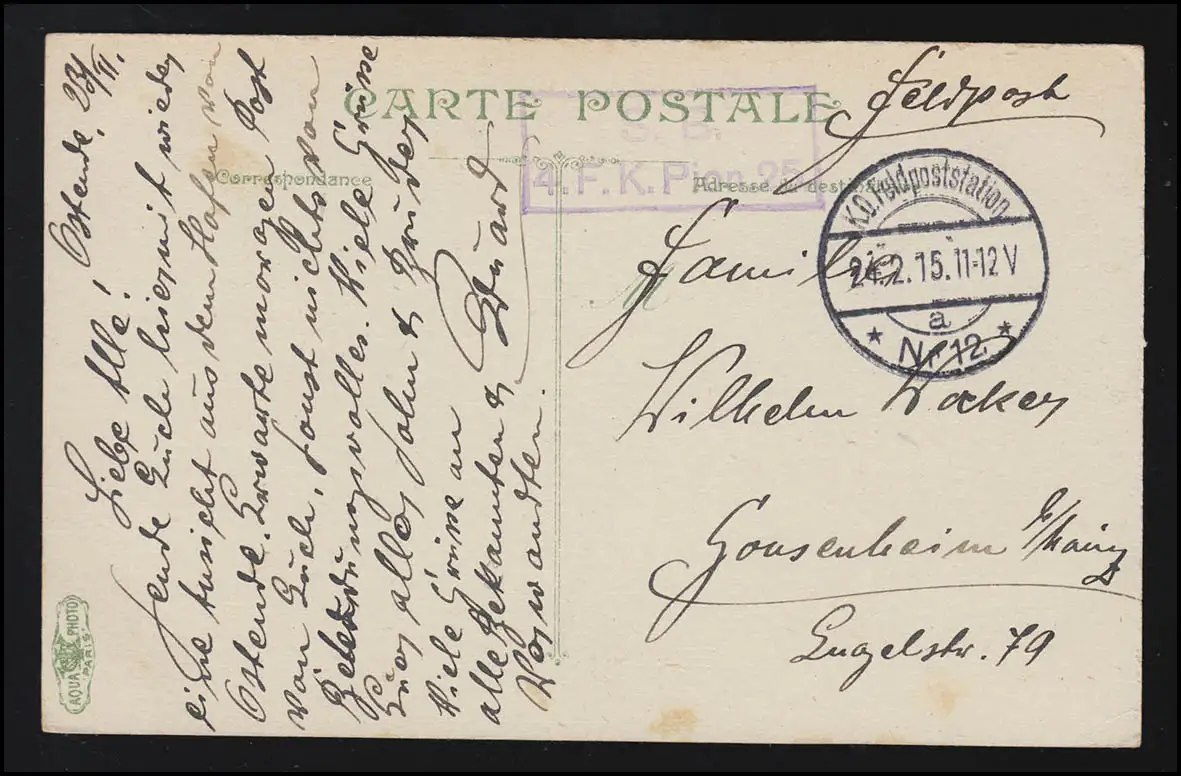 CARTE POSTALE
Feldpost
S. B.
4. F. K. Pion. 25
Correspondance
Adresse du destinataire
K.D. Feldpoststation
24.2.15. 11-12 V
a
* Nr 12 *
Ostende, 23/II.
Liebe Alle!
Sende Euch hiermit wieder
eine Ansicht aus dem Hafen von
Ostende. Erwarte morgen Post
von Euch, sonst nichts von
Bedeutungsvolles. Viele Grüße
Euer aller Sohn & Bruder
Eduard
Viele Grüße an
alle Bekannten &
Verwandten.
Familie
Wilhelm Wacker
Gonsenheim b/Mainz
Engelstr. 79
AQUA PHOTO
PARIS